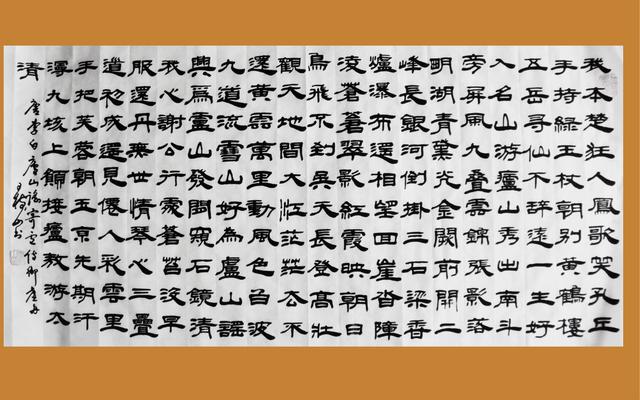 我本楚狂人鳳歌笑孔丘
手持綠玉杖朝別黃鶴樓
五岳寻仙不辭遠一生好
入名山游廬山秀出南斗
旁屏風九叠雲錦張影落
明湖青黛光金闕前開二
峰長銀河倒掛三石梁香
爐瀑布遥相望回崖沓障
凌蒼蒼翠影紅霞映朝日
鳥飛不到吴天長登高壯
觀天地間大江茫茫去不
還黃雲萬里動風色白波
九道流雪山好為廬山謠
興為廬山發閑窺石鏡清
我心謝公行處蒼苔沒早
服還丹無世情琴心三疊
道初成遥見僊人彩雲里
手把芙蓉朝玉京先期汗
漫九垓上願接盧敖游太
清
唐李白廬山謠寄盧侍御虛舟